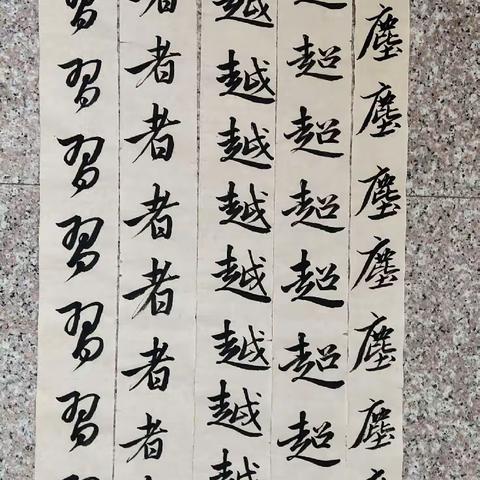 塵塵塵塵塵塵
超超超超超超
越越越越越越越越
者者者者者者者
習習習習習習